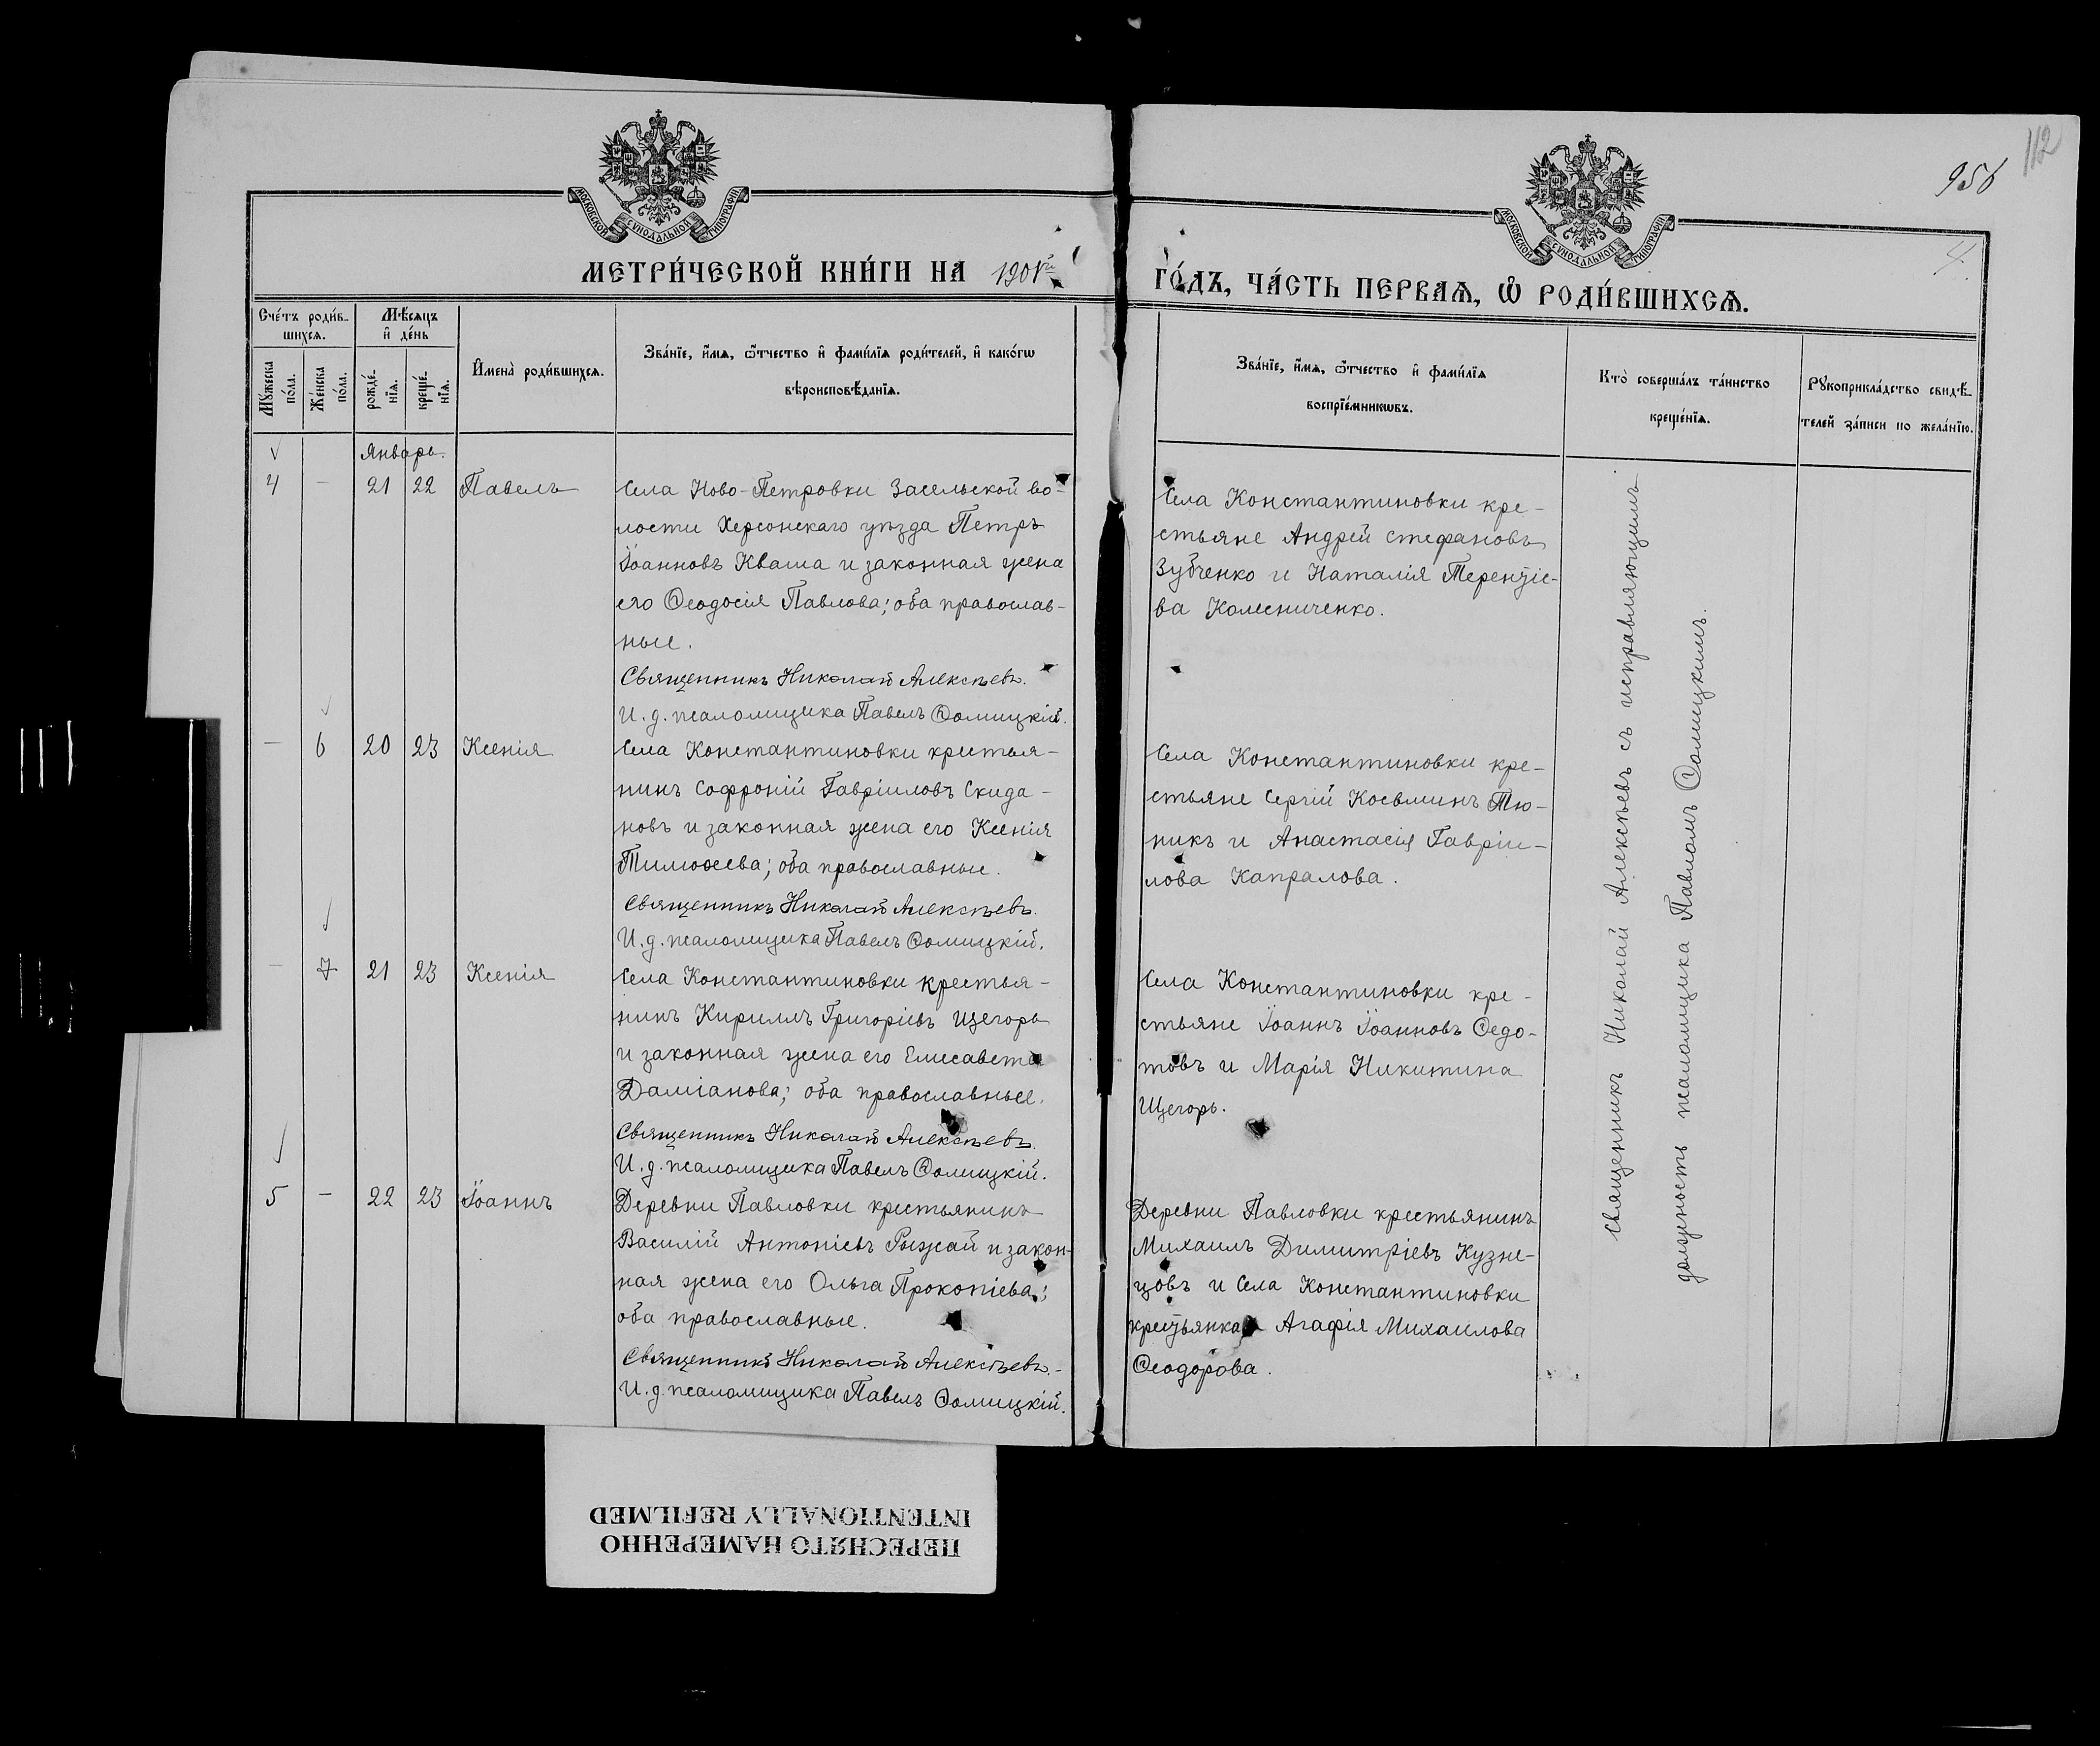 112
956
4.
МОСКОВСКОЙ СѴНОДАЛЬНОЙ ТИПОГРАФІИ
МОСКОВСКОЙ СѴНОДАЛЬНОЙ ТИПОГРАФІИ
МЕТРИ́ЧЕСКОЙ КНИ́ГИ НА 1901й
ГО́ДЪ, ЧА́СТЬ ПЕРВАѦ, Ѽ РОДИ́ВШИХСѦ.
Сче́тъ роди́в-
шихсѧ.
Мꙋ́жеска
по́ла.
Же́нска
по́ла.
Мѣ́сѧцъ
и҆ де́нь
рожде́-
нїѧ.
креще́-
нїѧ.
И҆мена̀ роди́вшихсѧ.
Зва́нїе, и҆́мѧ, ѻ҆́тчество и҆ фами́лїѧ роди́телей, и҆ како́гѡ
вѣроисповѣ́данїѧ.
Зва́нїе, и҆́мѧ, ѻ҆́тчество и҆ фами́лїѧ
воспрїе́мникѡвъ.
Кто̀ соверша́лъ та́инство
креще́нїѧ.
Рꙋкоприкла́дство свидѣ́-
телей за́писи по жела́нїю.
Январь.
4 - 21 22 Павелъ
Села Ново-Петровки Засельской во-
лости Херсонскаго уѣзда Петръ
Іоанновъ Кваша и законная жена
его Ѳеодосія Павлова; оба православ-
ные.
Священникъ Николай Алексѣевъ.
И. д. псаломщика Павелъ Ѳомицкій.
Села Константиновки кре-
стьяне Андрей Стефановъ
Зубченко и Наталія Терентіе-
ва Колесниченко.
- 6 20 23 Ксенія
Села Константиновки крестья-
нинъ Софроній Гавріиловъ Скида-
новъ и законная жена его Ксенія
Тимоѳеева; оба православные.
Священникъ Николай Алексѣевъ.
И. д. псаломщика Павелъ Ѳомицкій.
Села Константиновки кре-
стьяне Сергій Косьминъ Тю-
никъ и Анастасія Гавріи-
лова Капралова.
- 7 21 23 Ксенія
Села Константиновки крестья-
нинъ Кириллъ Григоріевъ Щегорь
и законная жена его Елисавета
Даміанова; оба православные.
Священникъ Николай Алексѣевъ.
И. д. псаломщика Павелъ Ѳомицкій.
Села Константиновки кре-
стьяне Іоаннъ Іоанновъ Ѳедо-
товъ и Марія Никитина
Щегорь.
5 - 22 23 Іоаннъ
Деревни Павловки крестьянинъ
Василій Антоніевъ Рыжай и закон-
ная жена его Ольга Прокопіева;
оба православные.
Священникъ Николай Алексѣевъ.
И. д. псаломщика Павелъ Ѳомицкій.
Деревни Павловки крестьянинъ
Михаилъ Димитріевъ Кузне-
цовъ и Села Константиновки
крестьянка Агафія Михаилова
Ѳеодорова.
Священникъ Николай Алексѣевъ съ исправляющимъ
должность псаломщика Павломъ Ѳомицкимъ.
ПЕРЕСНЯТО НАМЕРЕННО
INTENTIONALLY REFILMED